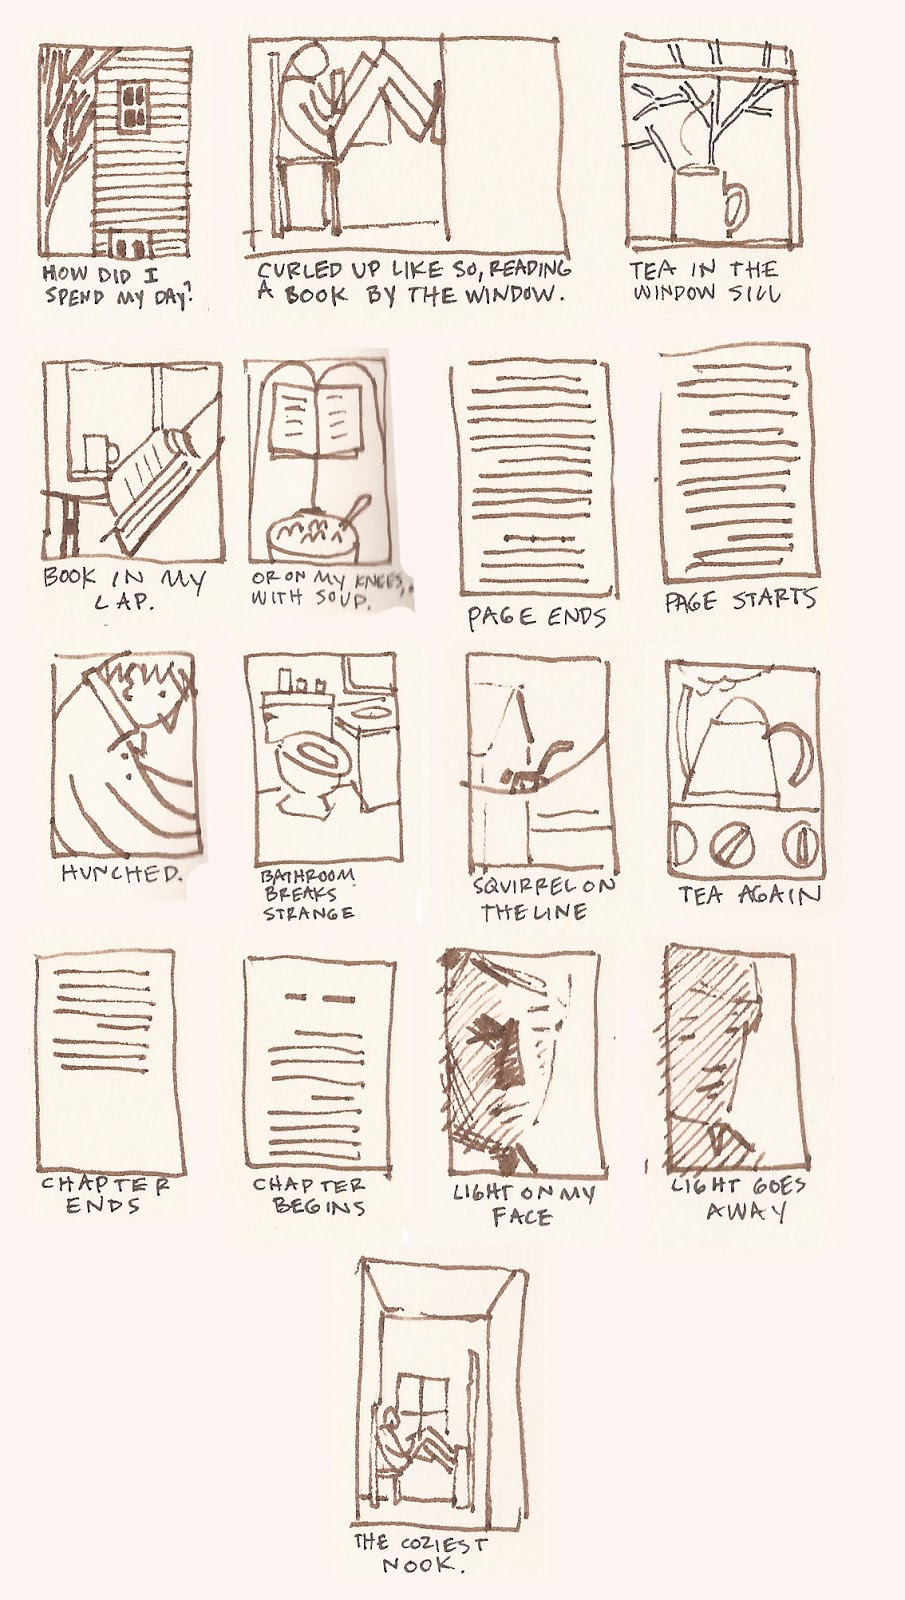 HOW DID I
SPEND MY DAY?
CURLED UP LIKE SO, READING
A BOOK BY THE WINDOW.
TEA IN THE
WINDOW SILL
BOOK IN MY
LAP.
OR ON MY KNEES,
WITH SOUP.
PAGE ENDS
PAGE STARTS
HUNCHED.
BATHROOM
BREAKS
STRANGE
SQUIRREL ON
THE LINE
TEA AGAIN
CHAPTER
ENDS
CHAPTER
BEGINS
LIGHT ON MY
FACE
LIGHT GOES
AWAY
THE COZIEST
NOOK.